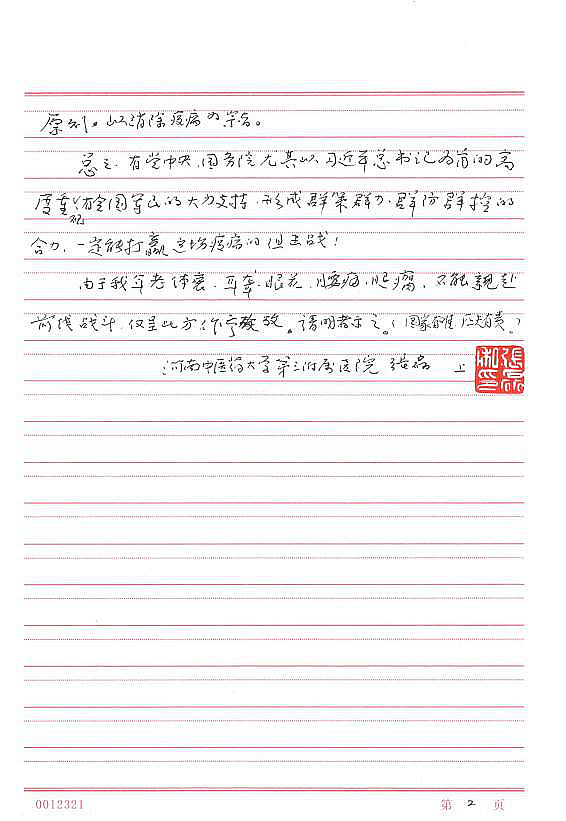 原则。以消除疫病的崇命。
总之,有党中央、国务院尤其以习近平总书记为首的高
度重视
全国军民的大力支持,形成群策群力,群防群控的
合力,一定能打赢这场疫病的阻击战!
由于我年老体衰、耳聋、眼花、腰痛、腿痛,不能亲赴
前线战斗,仅呈此方作参考。请明者示之。(国家有难,匹夫有责。)
河南中医药大学第三附属医院 张磊 上
张磊
私印
0012321 第 2 页